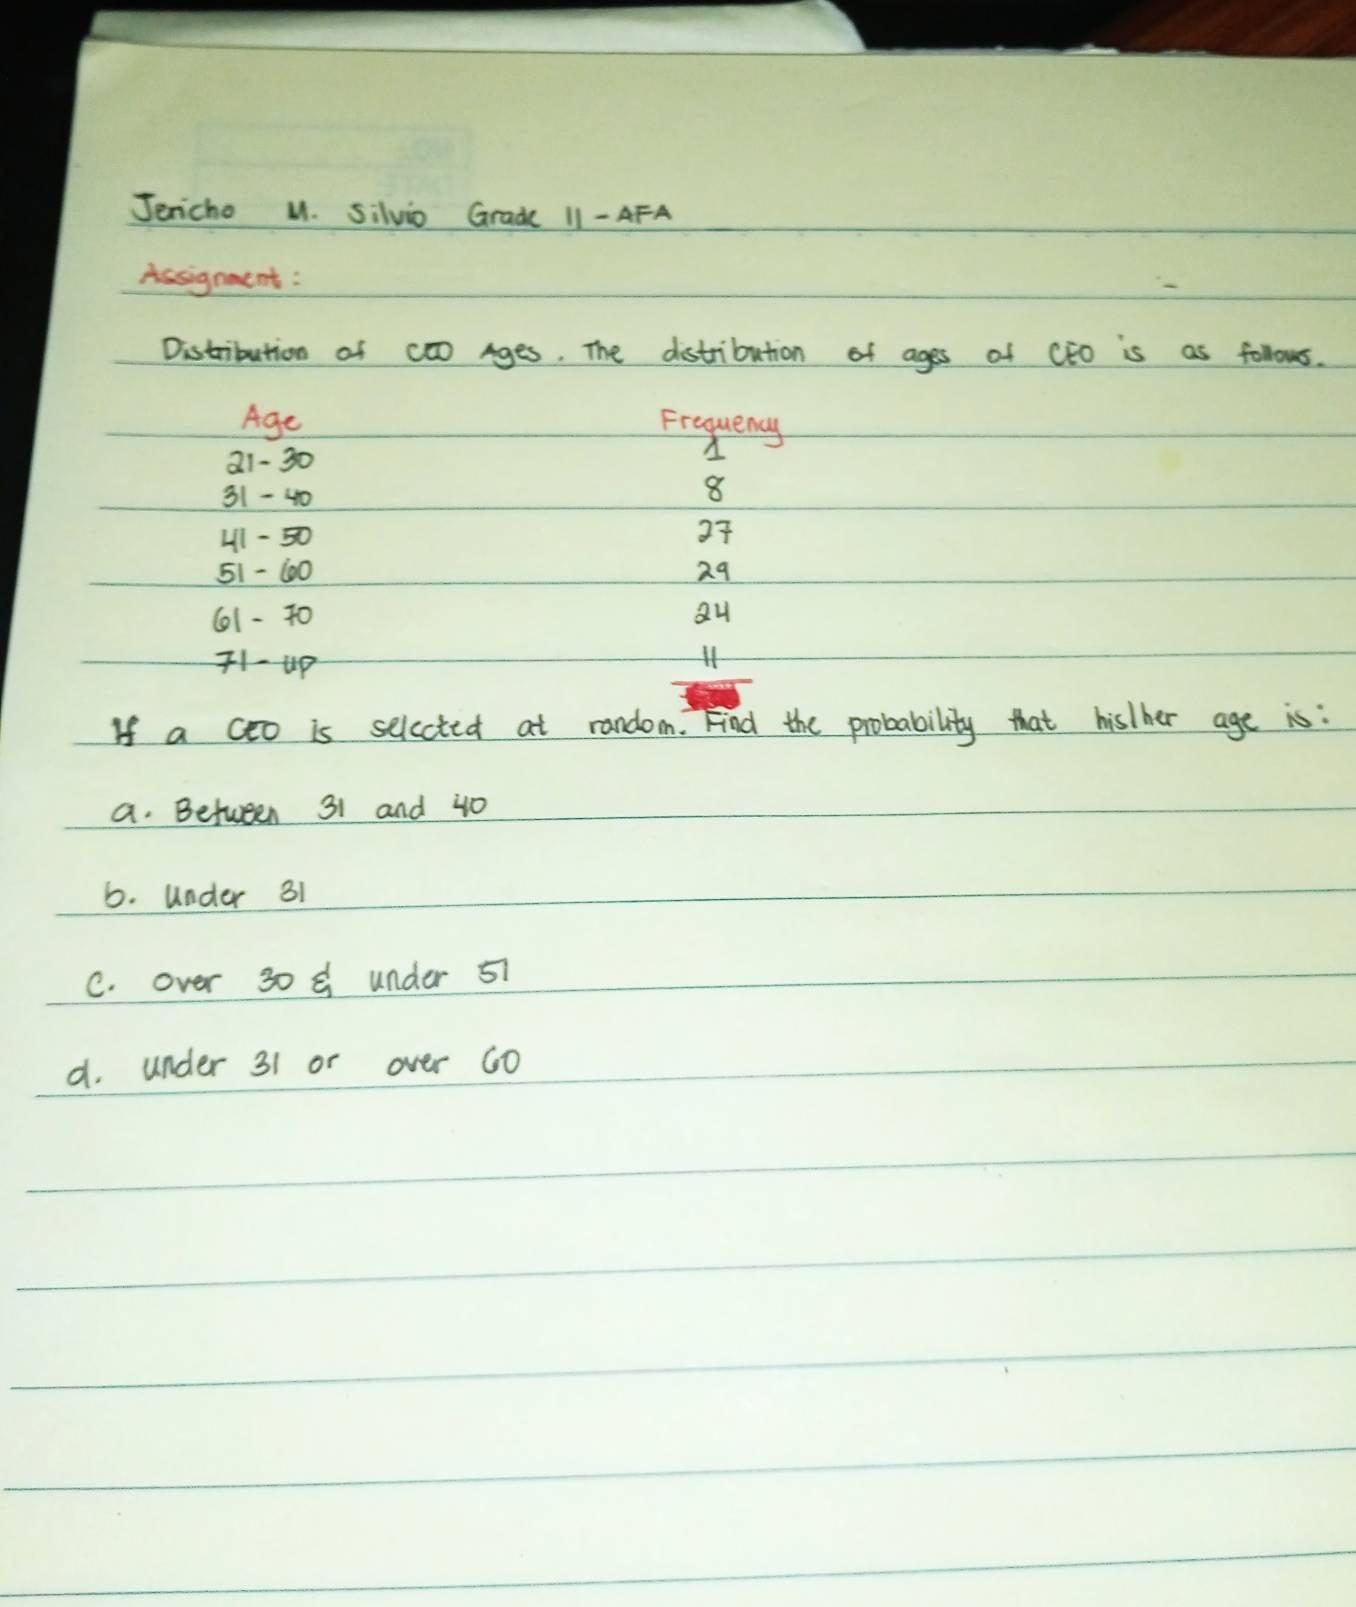 Jericho M. Silvio Grade 11 - AFA
Assignment:
Distribution of CEO Ages. The distribution of ages of CEO is as follows.
Age Frequency
21 - 30 1
31 - 40 8
41 - 50 27
51 - 60 29
61 - 70 24
71 - up 11
If a CEO is selected at random. Find the probability that his/her age is:
a. Between 31 and 40
b. under 31
c. over 30 & under 51
d. under 31 or over 60